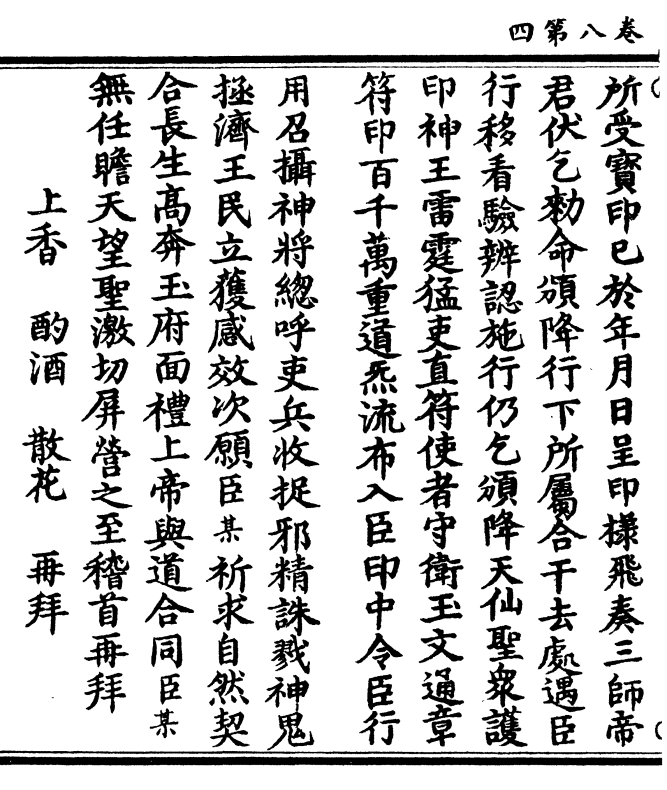 卷八第四
所受寶印已於年月日呈印樣飛奏三師帝
君伏乞勑命頒降行下所屬合干去處遇臣
行移看驗辨認施行仍乞頒降天仙聖衆護
印神王雷霆猛吏直符使者守衛玉文通章
符印百千萬重道炁流布入臣印中令臣行
用召攝神將緫呼吏兵收捉邪精誅戮神鬼
拯濟王民立獲感效次願臣某祈求自然契
合長生高奔玉府面禮上帝與道合同臣某
無任瞻天望聖激切屏營之至稽首再拜
上香 酌酒 散花 再拜